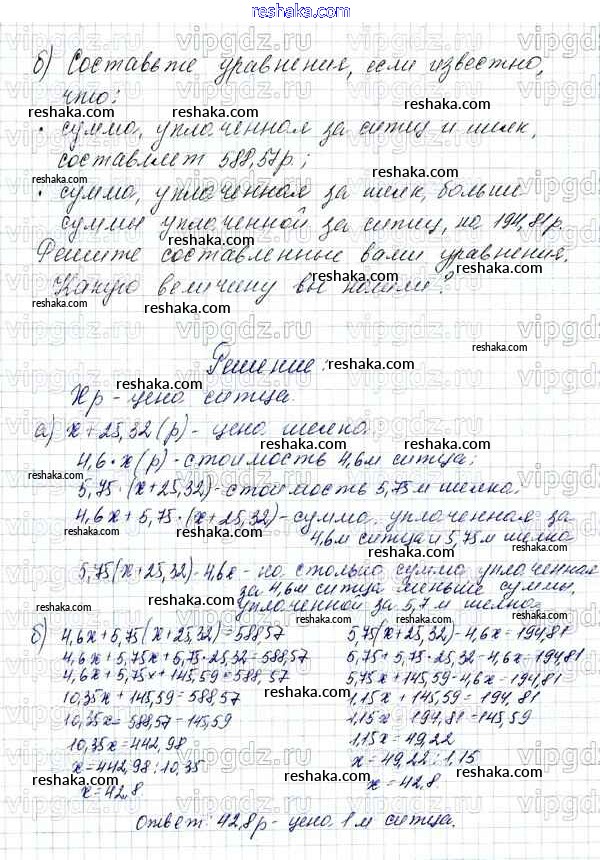 reshaka.com
б) Составьте уравнения, если известно,
что:
• сумма, уплаченная за ситец и шёлк,
составляет 588,57р;
• сумма, уплаченная за шелк, больше
суммы уплаченной за ситец, на 194,81р.
Решите составленные вами уравнения.
Какую величину вы нашли?
Решение:
Xр - цена ситца.
а) x+25,32(р) - цена шелка
4,6·x(р) - стоимость 4,6м ситца;
5,75·(x+25,32) - стоимость 5,75м шелка.
4,6x+5,75·(x+25,32) - сумма уплаченная за
4,6м ситца и 5,75м шелка
5,75(x+25,32)-4,6x - на столько сумма уплаченная
за 4,6м ситца меньше суммы,
уплаченной за 5,7м шелка
б) 4,6x+5,75(x+25,32)=588,57
4,6x+5,75x+5,75·25,32=588,57
4,6x+5,75x+145,59=588,57
10,35x+145,59=588,57
10,35x=588,57-145,59
10,35x=442,98
x=442,98:10,35
x=42,8
5,75(x+25,32)-4,6x=194,81
5,75+5,75·25,32-4,6x=194,81
5,75x+145,59-4,6x=194,81
1,15x+145,59=194,81
1,15x=194,81-145,59
1,15x=49,22
x=49,22:1,15
x=42,8
Ответ: 42,8р - цена 1м ситца.